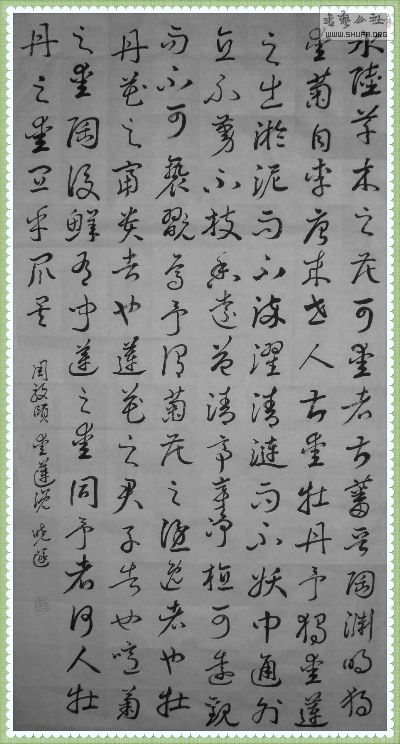 水陸草木之花可愛者甚蕃晋陶淵明獨
愛菊自李唐来世人甚愛牡丹予獨愛蓮
之出淤泥而不染濯清漣而不妖中通外
直不蔓不枝香遠益清亭亭淨植可遠觀
而不可褻翫焉予謂菊花之隱逸者也牡
丹花之富貴者也蓮花之君子者也噫菊
之愛陶後鮮有聞蓮之愛同予者何人牡
丹之愛宜乎衆矣
周敦頤愛蓮説
書藝公社
WWW.SHUFA.ORG